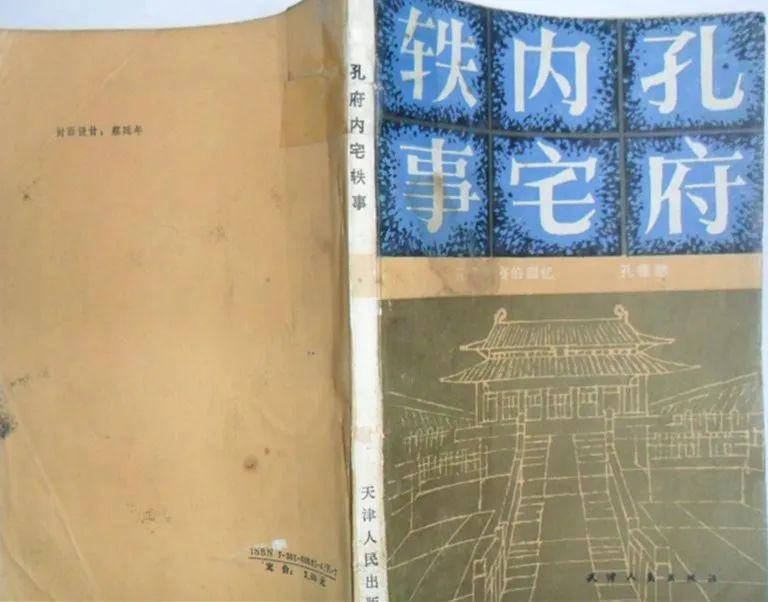 孔府
内宅
轶事
的回忆
孔德懋
天津人民出版社
孔府内宅轶事
天津人民出版
封面设计：
年
ISBN 7-201-
定价：
元